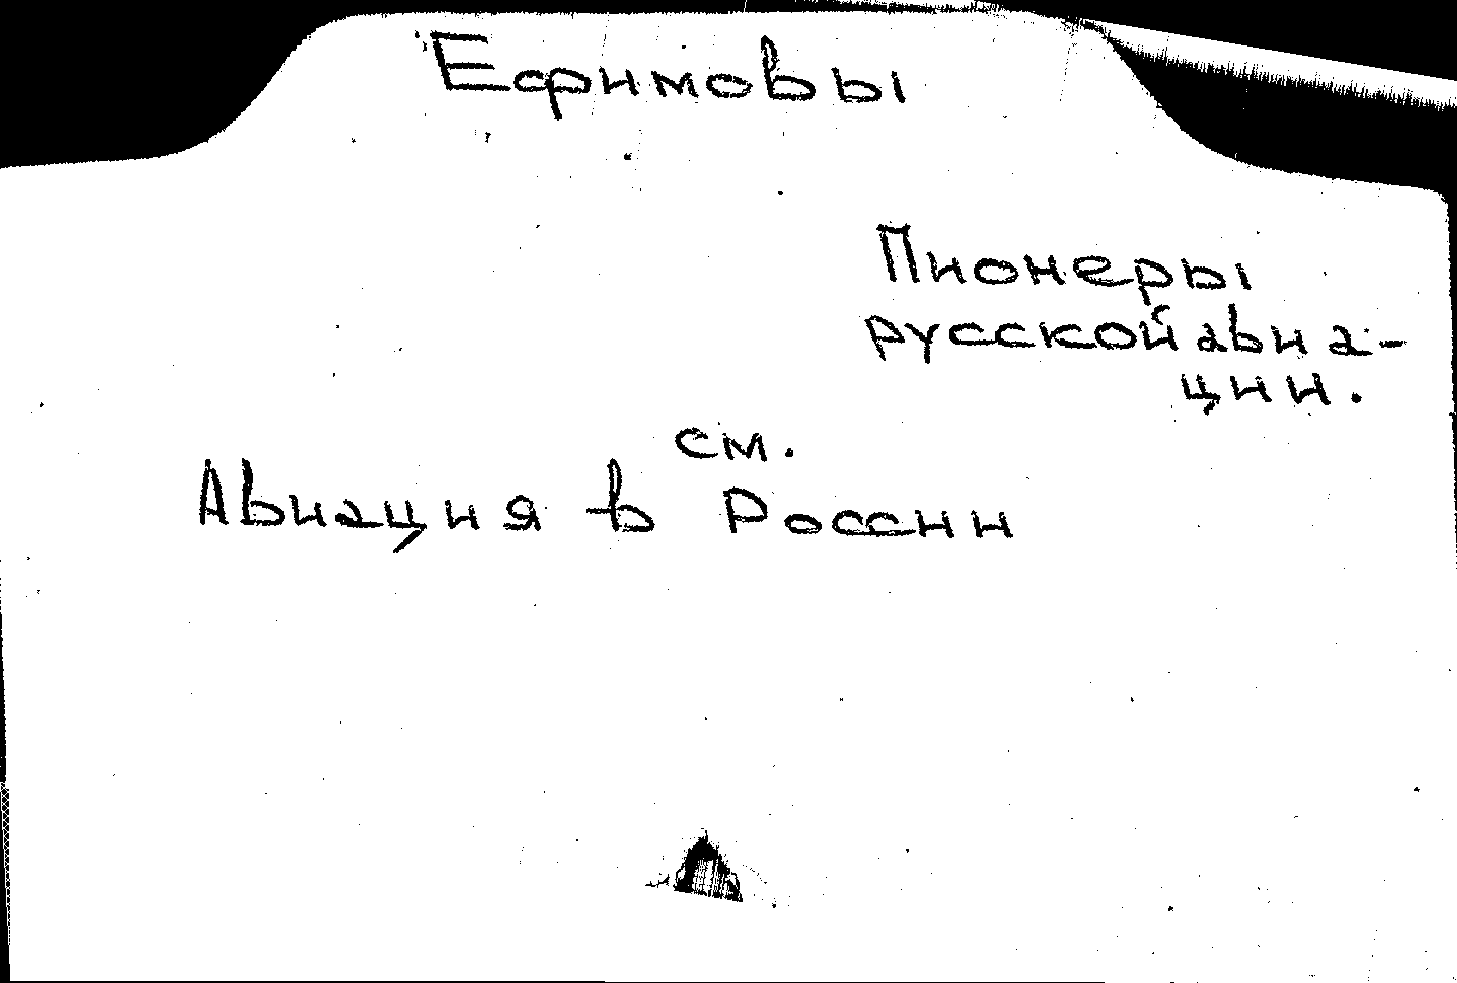 Ефимовы
Пионеры
русской авиа-
ции.
см.
Авиация в России